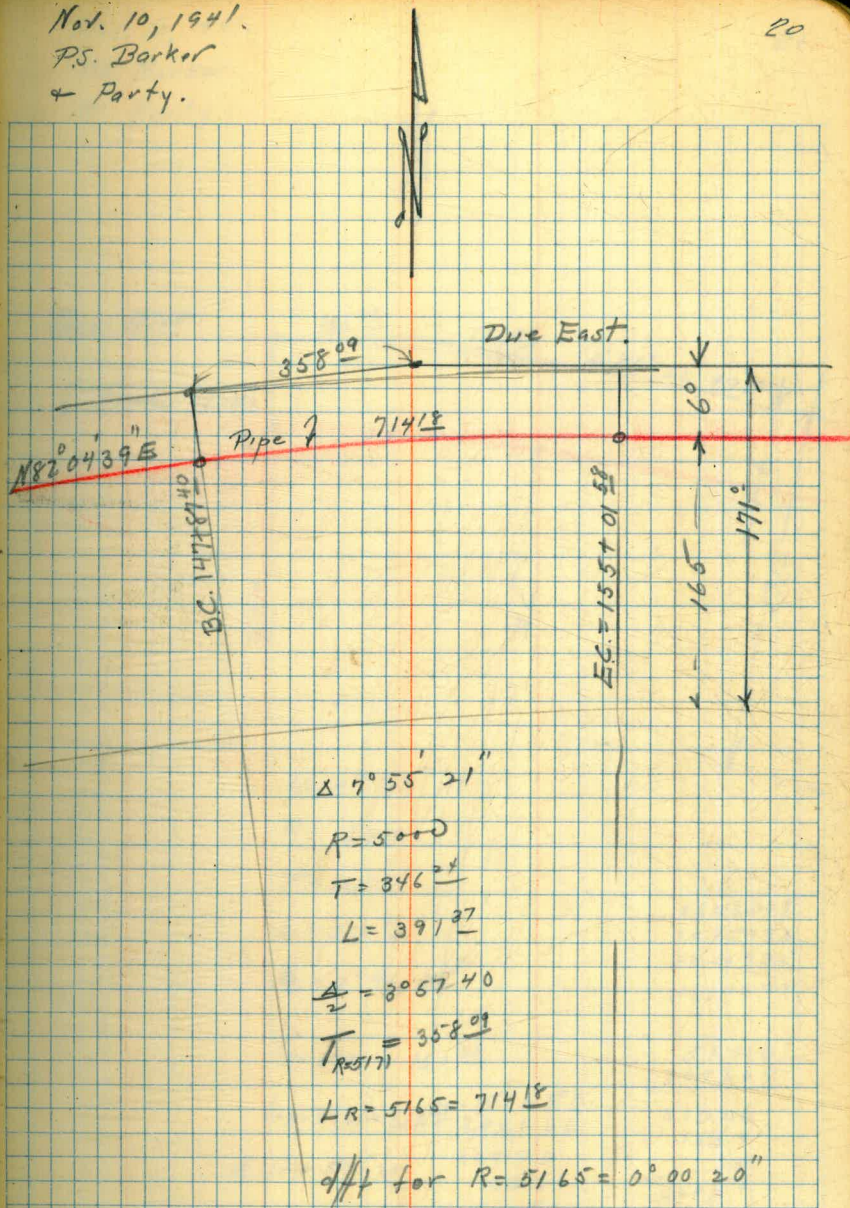 Nov. 10, 1941.
20
P.S. Barker
& Party.
N
Due East.
358 09
6°
714 18
Pipe
N82° 04' 39" E
B.C. 147+87 40
E.C. = 155+01 58
165
171°
Δ 7° 55' 21"
R = 5000
T = 346 24
L = 391 37
Δ/2 = 3° 57 40
T R=5171 = 358 09
L R = 5165 = 714 18
d/ft for R = 5165 = 0° 00 20"